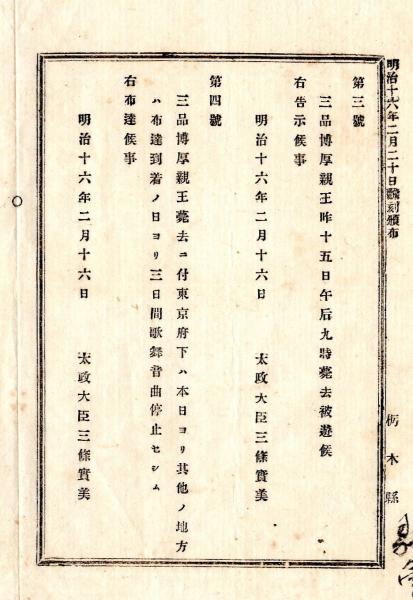 明治十六年二月二十日飜刻頒布
栃木縣
第三號
三品博厚親王昨十五日午后九時薨去被遊候
右告示候事
明治十六年二月十六日　太政大臣三條實美
第四號
三品博厚親王薨去ニ付東京府下ハ本日ヨリ其他ノ地方
ハ布達到着ノ日ヨリ三日間歌舞音曲停止セシム
右布達候事
明治十六年二月十六日　太政大臣三條實美